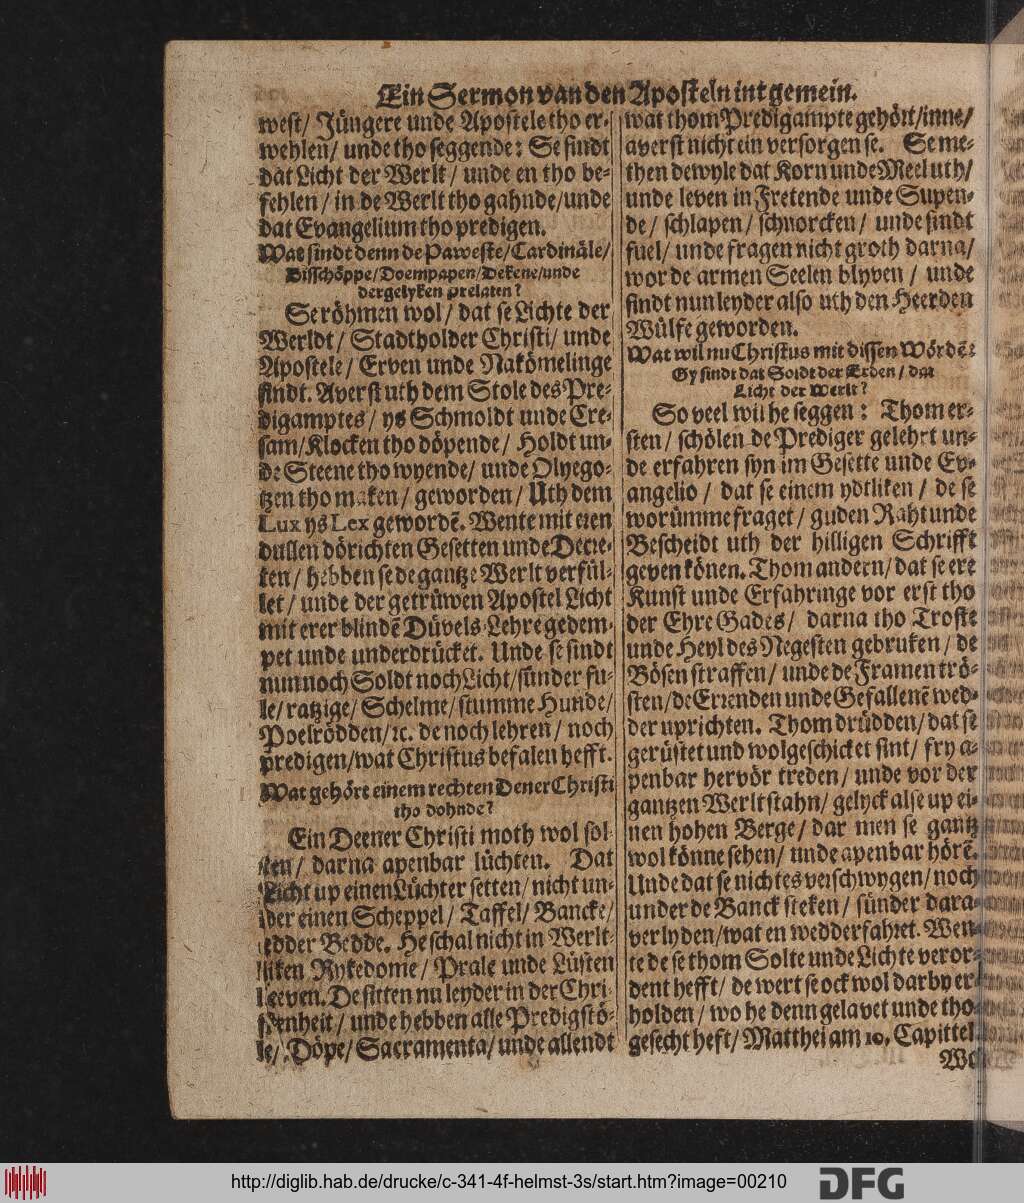 Ein Sermon van den Aposteln int gemein.
west/ Jüngere unde Apostele tho er-
wehlen/ unde tho seggende: Se sindt
dat Licht der Werlt/ unde en tho be-
fehlen/ in de Werlt tho gahnde/unde
dat Evangelium tho predigen.
Wat sindt denn de Paweste/Cardinäle/
Bisschöppe/Doempapen/Dekene/unde
dergelyken prelaten?
Se röhmen wol/ dat se Lichte der
Werldt/ Stadtholder Christi/ unde
Apostele/ Erven unde Nakömelinge
sindt. Averst uth dem Stole des Pre-
digamptes/ ys Schmoldt unde Cre-
sam/Klocken tho döpende/ Holdt un-
de Steene tho wyende/ unde Olyego-
tzen tho maken/ geworden/ Uth dem
Lux ys Lex gewordē. Wente mit eren
dullen dörichten Gesetten unde Decre-
ten/ hebben se de gantze Werlt verfül-
let/ unde der getrüwen Apostel Licht
mit erer blindē Düvels Lehre gedem-
pet unde underdrücket. Unde se sindt
nun noch Soldt noch Licht/sünder fu-
le/ratzige/ Schelme/stumme Hunde/
Poelrödden/ꝛc. de noch lehren/ noch
predigen/wat Christus befalen hefft.
Wat gehört einem rechten Dener Christi
tho dohnde?
Ein Deener Christi moth wol sol-
ten/ darna apenbar lüchten. Dat
Licht up einen Lüchter setten/ nicht un-
der einen Scheppel/ Taffel/ Bancke/
edder Bedde. He schal nicht in Werlt-
liken Rykedome/ Prale unde Lüsten
leeven. De sitten nu leyder in der Chri-
stenheit/ unde hebben alle Predigstö-
le/ Döpe/ Sacramenta/ unde allendt
wat thom Predigampte gehört/inne/
averst nicht ein versorgen se. Se me-
then dewyle dat Korn unde Meel uth/
unde leven in Fretende unde Supen-
de/ schlapen/ schnorcken/ unde sindt
fuel/ unde fragen nicht groth darna/
wor de armen Seelen blyven/ unde
sindt nun leyder also uth den Heerden
Wülfe geworden.
Wat wil nu Christus mit dissen Wördē:
Gy sindt dat Soldt der Erden/ dat
Licht der Werlt?
So veel wil he seggen: Thom er-
sten/ schölen de Prediger gelehrt un-
de erfahren syn im Gesette unde Ev-
angelio/ dat se einem ydtliken/ de se
worümme fraget/ guden Raht unde
Bescheidt uth der hilligen Schrifft
geven könen. Thom andern/ dat se ere
Kunst unde Erfahringe vor erst tho
der Ehre Gades/ darna tho Troste
unde Heyl des Negesten gebruken/ de
Bösen straffen/ unde de Framen trö-
sten/de Errenden unde Gefallenē wed-
der uprichten. Thom drüdden/ dat se
gerüstet und wolgeschicket sint/ fry a-
penbar hervör treden/ unde vor der
gantzen Werlt stahn/ gelyck alse up ei-
nen hohen Berge/ dar men se gantz
wol könne sehen/ unde apenbar hörē.
Unde dat se nichtes verschwygen/ noch
under de Banck steken/ sünder dara-
ver lyden/wat en wedderfahret. Wen-
te de se thom Solte unde Lichte veror-
dent hefft/ de wert se ock wol darby er-
holden/ wo he denn gelavet unde tho-
gesecht heft/ Matthei am 10. Capittel
http://diglib.hab.de/drucke/c-341-4f-helmst-3s/start.htm?image=00210
DFG